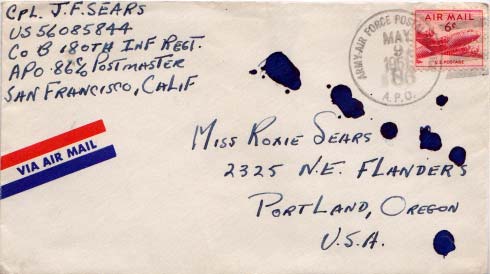 CPL. J.F. SEARS
US 56085844
CO B 180TH INF REGT.
APO 86 C/O POSTMASTER
SAN FRANCISCO, CALIF
ARMY-AIR FORCE POSTAL
MAY
9
A.P.O.
AIR MAIL
6¢
U.S. POSTAGE
VIA AIR MAIL
MISS ROXIE SEARS
2325 N.E. FLANDERS
PORTLAND, OREGON
U.S.A.